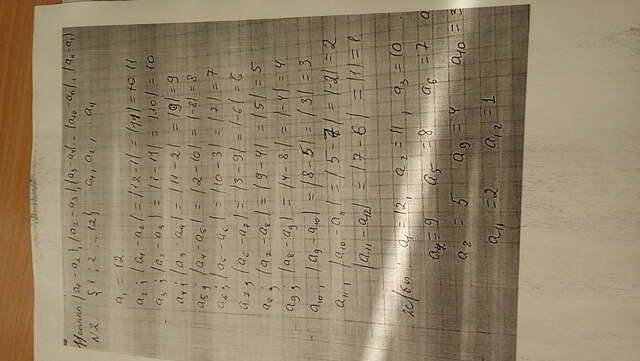 11 |a₁-a₂|, |a₂-a₃|, |a₃-a₄|... |a₁₀-a₁₁|, |a₁₁-a₁|
N2 {1; 2 ... 12} a₁, a₂, ... a₁₁
a₁ = 12
a₂; |a₁-a₂| = |12-1| = |11| = 11
a₃; |a₂-a₃| = |1-11| = |10| = 10
a₄; |a₃-a₄| = |11-2| = |9| = 9
a₅; |a₄-a₅| = |2-10| = |-8| = 8
a₆; |a₅-a₆| = |10-3| = |7| = 7
a₇; |a₆-a₇| = |3-9| = |-6| = 6
a₈; |a₇-a₈| = |9-4| = |5| = 5
a₉; |a₈-a₉| = |4-8| = |-4| = 4
a₁₀; |a₉-a₁₀| = |8-5| = |3| = 3
a₁₁, |a₁₀-a₁₁| = |5-7| = |-2| = 2
|a₁₁-a₁₂| = |7-6| = |1| = 1.
ж/бы: a₁ = 12, a₂ = 11, a₃ = 10
a₄ = 9 a₅ = 8 a₆ = 7 a
a₈ = 5 a₉ = 4 a₁₀ = 3
a₁₁ = 2 a₁₂ = 1